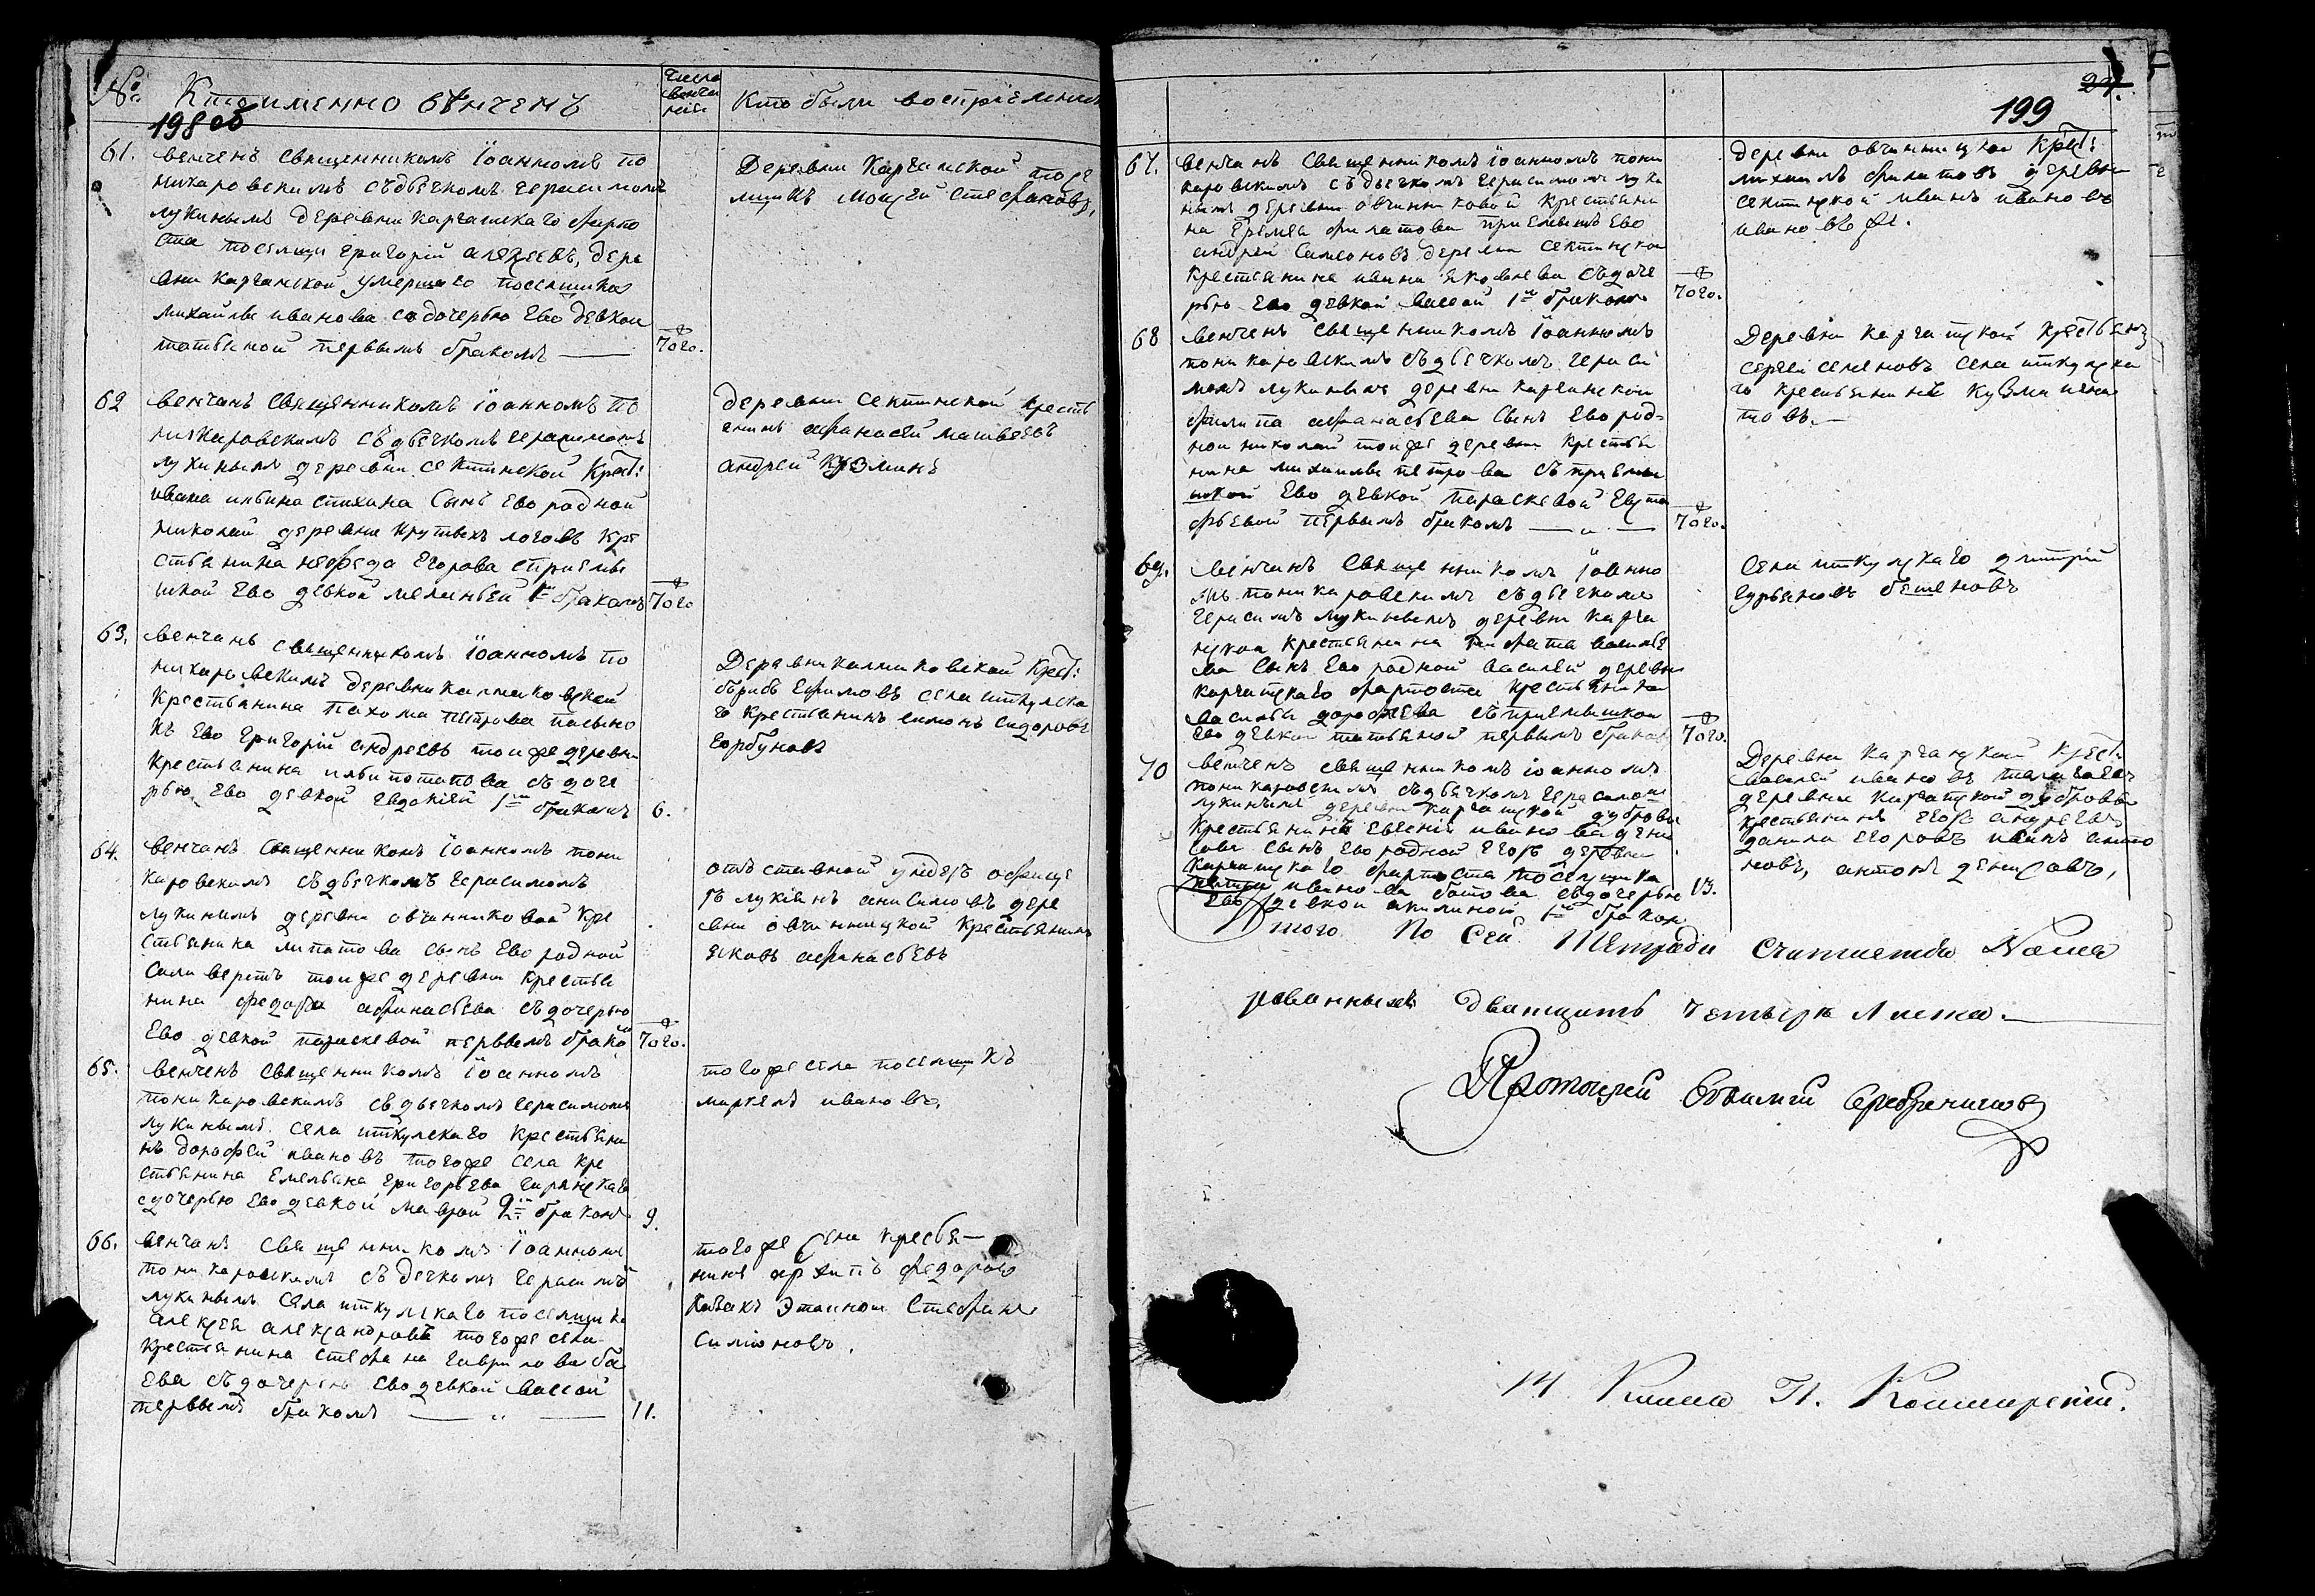 №
Кто именно вѣнченъ
Числа венча нiя
Кто были воспрiемник
198 об
61.
венченъ священникомъ Iоанномъ по
никаровскимъ съдьячкомъ герасимомъ
лукинымъ деревни карчашскаго форпо
ста поселщи григорiй алексеевъ, дере
вни карчанской умершаго поселщика
михайлы иванова сдочерью Ево девкои
татьяной первымъ бракомъ
того.
Деревни Карчанской посе
лщикъ Моисей Стефановъ,
62
венчанъ священникомъ Iоанномъ по
никаровскимъ съдьячкомъ герасимомъ
лукинымъ деревни сектинской Крест:
ивана ильина стихина Сынъ Ево родной
николай деревни крутыхъ логовъ кре
стьянина нефеда Егорова сприемы
шкой Ево девкой меланьей 1м бракомъ
того
деревни сектинской крестья
нинъ афанасей матвеевъ
андрей Кузминъ
63.
венчанъ священникомъ Iоанномъ по
никаровскимъ деревни калмаковской
Крестьянина пахома петрова пасыно
къ Ево григорiй андреевъ тоиже деревни
Крестьянина ильи потапова съ доче
рью Ево девкой Евдокiей 1м бракомъ
6.
Деревни калмаковской Крест:
борисъ Ефимовъ села иткулска
го крестьянинъ симонъ сидоровъ
горбуновъ
64.
венчанъ Священникомъ Iоанномъ пони
каровскимъ съдьячкомъ герасимомъ
лукинымъ деревни овчинниковой кре
стьянина липатова сынъ Ево родной
силиверстъ тоиже деревни крестья
нина федора афанасьева съдочерью
Ево девкой параскевой первымъ брако
того.
отъставной ундеръ офице
ръ лукiянъ анисимовъ дере
вни овчинницкой Крестьянинъ
яковъ афанасьевъ
65.
венченъ священникомъ Iоанномъ
поникаровскимъ съдьячкомъ герасимомъ
лукинымъ села иткулскаго крестьяни
нъ дорофей ивановъ тогоже села кре
стьянина Емельяна григорьева
сдочерью Ево девкой маврой 2м бракомъ
9.
тогоже села поселщикъ
маркелъ ивановъ,
66.
венчанъ священникомъ Iоанномъ
поникаровскимъ съ дечкомъ герасимъ
лукинымъ Села иткулскаго поселщикъ
алексея александровъ тогоже села
крестьянина стефана гаврилова ба
ева съдочерью Ево девкой вассой
первымъ бракомъ
11.
тогоже села кресья
нинъ архипъ федоровъ
Казакъ Этапной Стефанъ
симоновъ.
199
67.
венчанъ священникомъ Iоанномъ пони
каровскимъ съдьечкомъ герасимомъ луки
нымъ деревни овчинниковой крестьяни
на Еремея филатова приемышъ Ево
андрей Самсоновъ деревни сектинской
Крестьянина ивана яковлева съдоче
рью Ево девкой вассой 1м бракомъ
того.
деревни овчинницкой Крест:
михаилъ филатовъ деревни
сектинской иванъ ивановъ
ивановъ же.
68
венченъ священникомъ Iоанномъ
поникаровскимъ съдьячкомъ гераси
момъ лукинымъ деревни карчинской
филипа афанасьева Сынъ Ево род-
нои николай тоиже деревни крестья
нина михаилы петрова съ приемы
шкой Ево девкой параскевой Евста
фьевой первымъ бракомъ
того.
Деревни карчацкой крестьянъ
сергей семеновъ села иткулска
го крестьянинъ Кузма игна
товъ.
69.
венчанъ Священникомъ Iоанно
мъ поникаровскимъ съдьячкомъ
герасимъ лукинымъ деревни карча
цкой крестьянина василье
ва Сынъ Ево родной василей деревни
карчацкаго фарпоста крестьянина
василья дорофеева съприемышкои
Ево девкой татьяной первымъ браком
того.
Села иткулскаго дмитрiй
гурьяновъ бешеновъ
70
венченъ священникомъ iоанномъ
поникаровскимъ съдьячкомъ герасимомъ
лукинымъ деревни карчацкой дубровы
Крестьянинъ Евсенiя иванова дени
сова сынъ Ево родной Егоръ деревни
карчацкаго фарпоста поселщика
иванова ботова съдочерью
Ево девкой акилиной 1м браком
13.
Деревни Карчацкой крест:
василей ивановъ
деревни карчацкой дубровы
крестьянинъ Егоръ андреевъ
данила Егоровъ иванъ анто
новъ, антонъ денисовъ,
того По Сей Тетради Считается Номе
рованныхъ дватцать четыре Листа.
Протоiерей Серебренниковъ